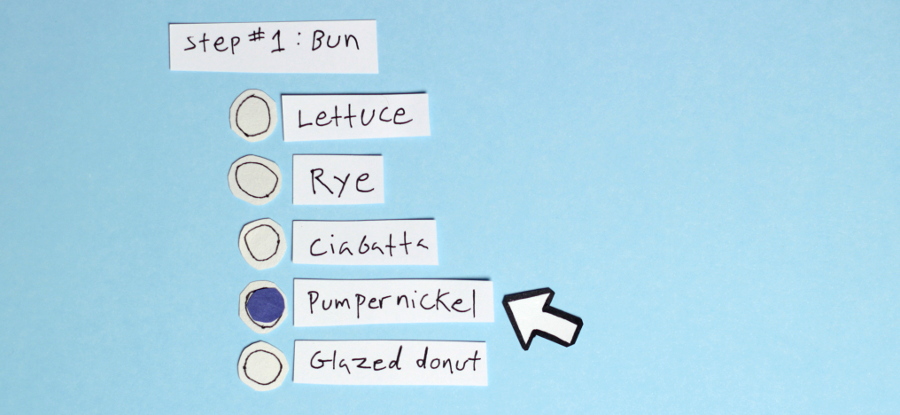 Step #1: Bun
Lettuce
Rye
Ciabatta
Pumpernickel
Glazed donut